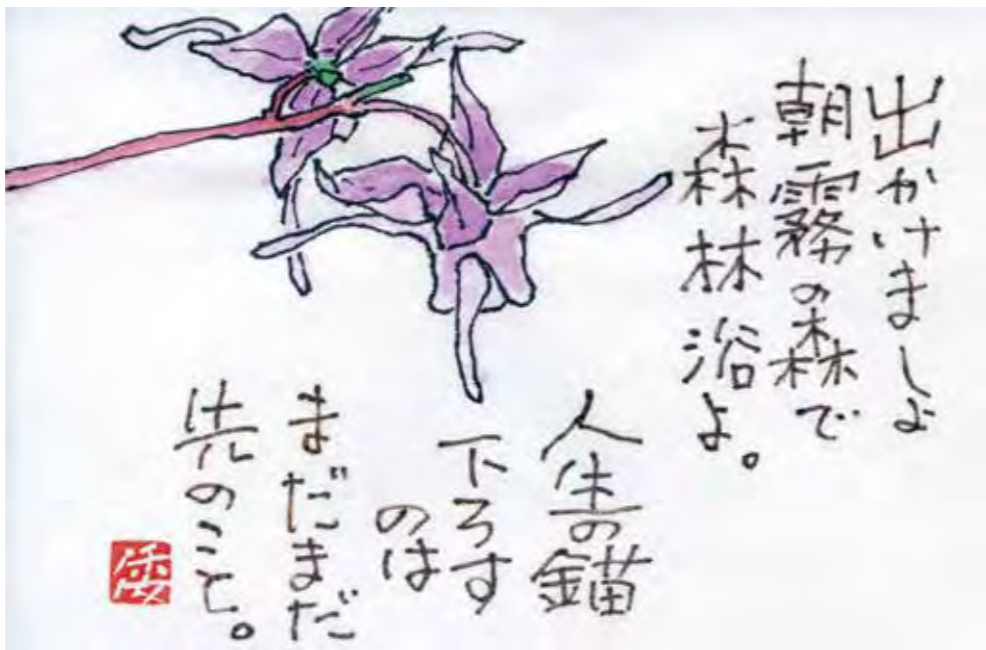 出かけましょ
朝霧の森で
森林浴よ。
人生の錨
下ろす
のは
まだまだ
先のこと。